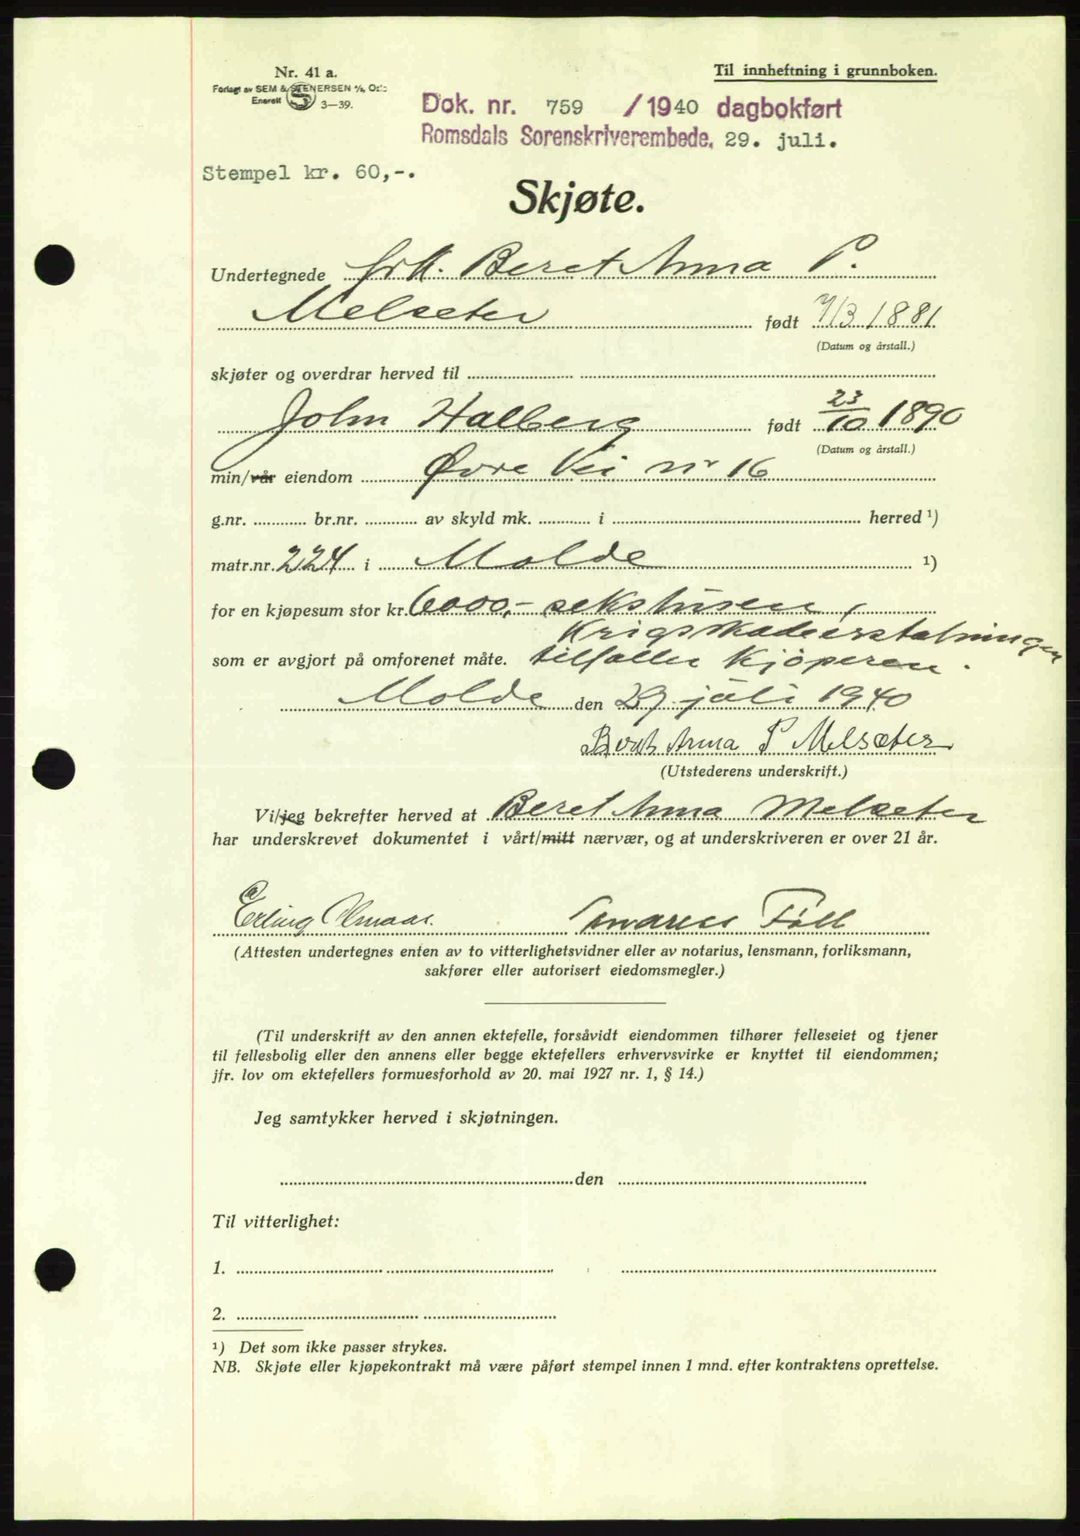 Nr. 41 a.
Til innheftning i grunnboken.
Forlagt av SEM & STENERSEN A/S, Oslo
Enerett S 3—39.
Dok. nr. 759 /1940 dagbokført
Romsdals Sorenskriverembede, 29. juli.
Stempel kr. 60,-.
Skjøte.
Undertegnede frk. Beret Anna P.
Melseter født 7/3 1881
(Datum og årstall.)
skjøter og overdrar herved til
John Halberg født 23/10 1890
(Datum og årstall.)
min/vår eiendom Øvre Vei nr 16
g.nr. br.nr. av skyld mk. i herred ¹)
matr.nr. 224 i Molde ¹)
for en kjøpesum stor kr. 6000,- sekstusen,
Krigsskadeerstatningen
som er avgjort på omforenet måte. tilfaller kjöperen.
Molde den 29. juli 1940
Beret Anna P Melsæter
(Utstederens underskrift.)
Vi/jeg bekrefter herved at Beret Anna Melseter
har underskrevet dokumentet i vårt/mitt nærvær, og at underskriveren er over 21 år.
Erling
(Attesten undertegnes enten av to vitterlighetsvidner eller av notarius, lensmann, forliksmann,
sakfører eller autorisert eiedomsmegler.)
(Til underskrift av den annen ektefelle, forsåvidt eiendommen tilhører felleseiet og tjener
til fellesbolig eller den annens eller begge ektefellers erhvervsvirke er knyttet til eiendommen;
jfr. lov om ektefellers formuesforhold av 20. mai 1927 nr. 1, § 14.)
Jeg samtykker herved i skjøtningen.
den
Til vitterlighet:
1.
2.
¹) Det som ikke passer strykes.
NB. Skjøte eller kjøpekontrakt må være påført stempel innen 1 mnd. efter kontraktens oprettelse.